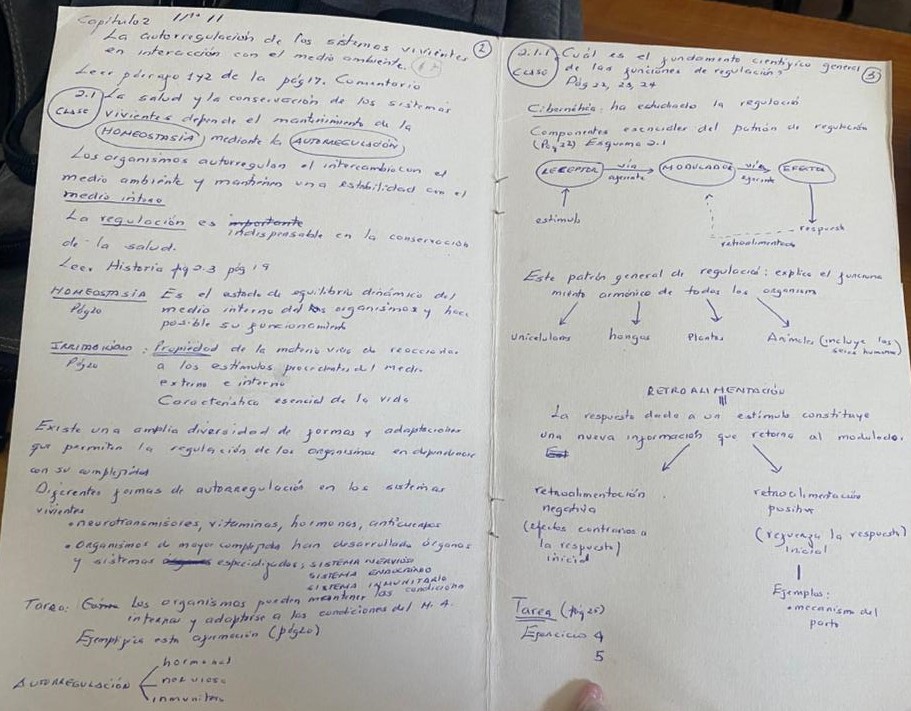 Capitulo 2
La autorregulación de los sistemas vivientes
en interacción con el medio ambiente.
2
Leer párrafo 1 y 2 de la pág 17. Comentario
2.1
Clase
La salud y la conservación de los sistemas
vivientes depende el mantenimiento de la
HOMEOSTASIA mediante la AUTORREGULACIÓN
Los organismos autorregulan el intercambio con el
medio ambiente y mantienen una estabilidad con el
medio interno
La regulación es importante
indispensable en la conservación
de la salud.
Leer Historia fig 2.3 pág 19
HOMEOSTASIA Es el estado de equilibrio dinámico del
Pág 20 medio interno del los organismos y hace
posible su funcionamiento
IRRITABILIDAD: Propiedad de la materia viva de reaccionar
Pág 20 a los estímulos procedentes del medio
externo e interno
Característica esencial de la vida
Existe una amplia diversidad de formas y adaptaciones
que permiten la regulación de los organismos en dependencia
con su complejidad
Diferentes formas de autorregulación en los sistemas
vivientes
• neurotransmisores, vitaminas, hormonas, anticuerpos
• Organismos de mayor complejidad han desarrollado órganos
y sistemas especializados; SISTEMA NERVIOSO
SISTEMA ENDOCRINO
SISTEMA INMUNITARIO
Tarea: Los organismos pueden mantener las condiciones
internas y adaptarse a las condiciones del M.A.
Ejemplifica esta afirmación (pág 20)
AUTORREGULACIÓN
hormonal
nerviosa
inmunitaria
2.1.1
Clase
Cuál es el fundamento científico general
de las funciones de regulación?
3
Pág 22, 23, 24
Cibernética: ha estudiado la regulació
Componentes esenciales del patrón de regulación
(Pág 22) Esquema 2.1
RECEPTOR vía aferente MODULADOR vía eferente EFECTOR
estímulo
respuesta
retroalimentación
Este patrón general de regulació: explica el funciona
miento armónico de todos los organism
Unicelulares hongos Plantas Animales (incluye los
seres humanos)
RETROALIMENTACIÓN
La respuesta dada a un estímulo constituye
una nueva información que retorna al modulador
retroalimentación
negativa
(efectos contrarios a
la respuesta)
inicial
retroalimentación
positiva
(refuerza la respuesta)
inicial
Ejemplos:
• mecanismo del
parto
Tarea (pág 25)
Ejercicio 4
5